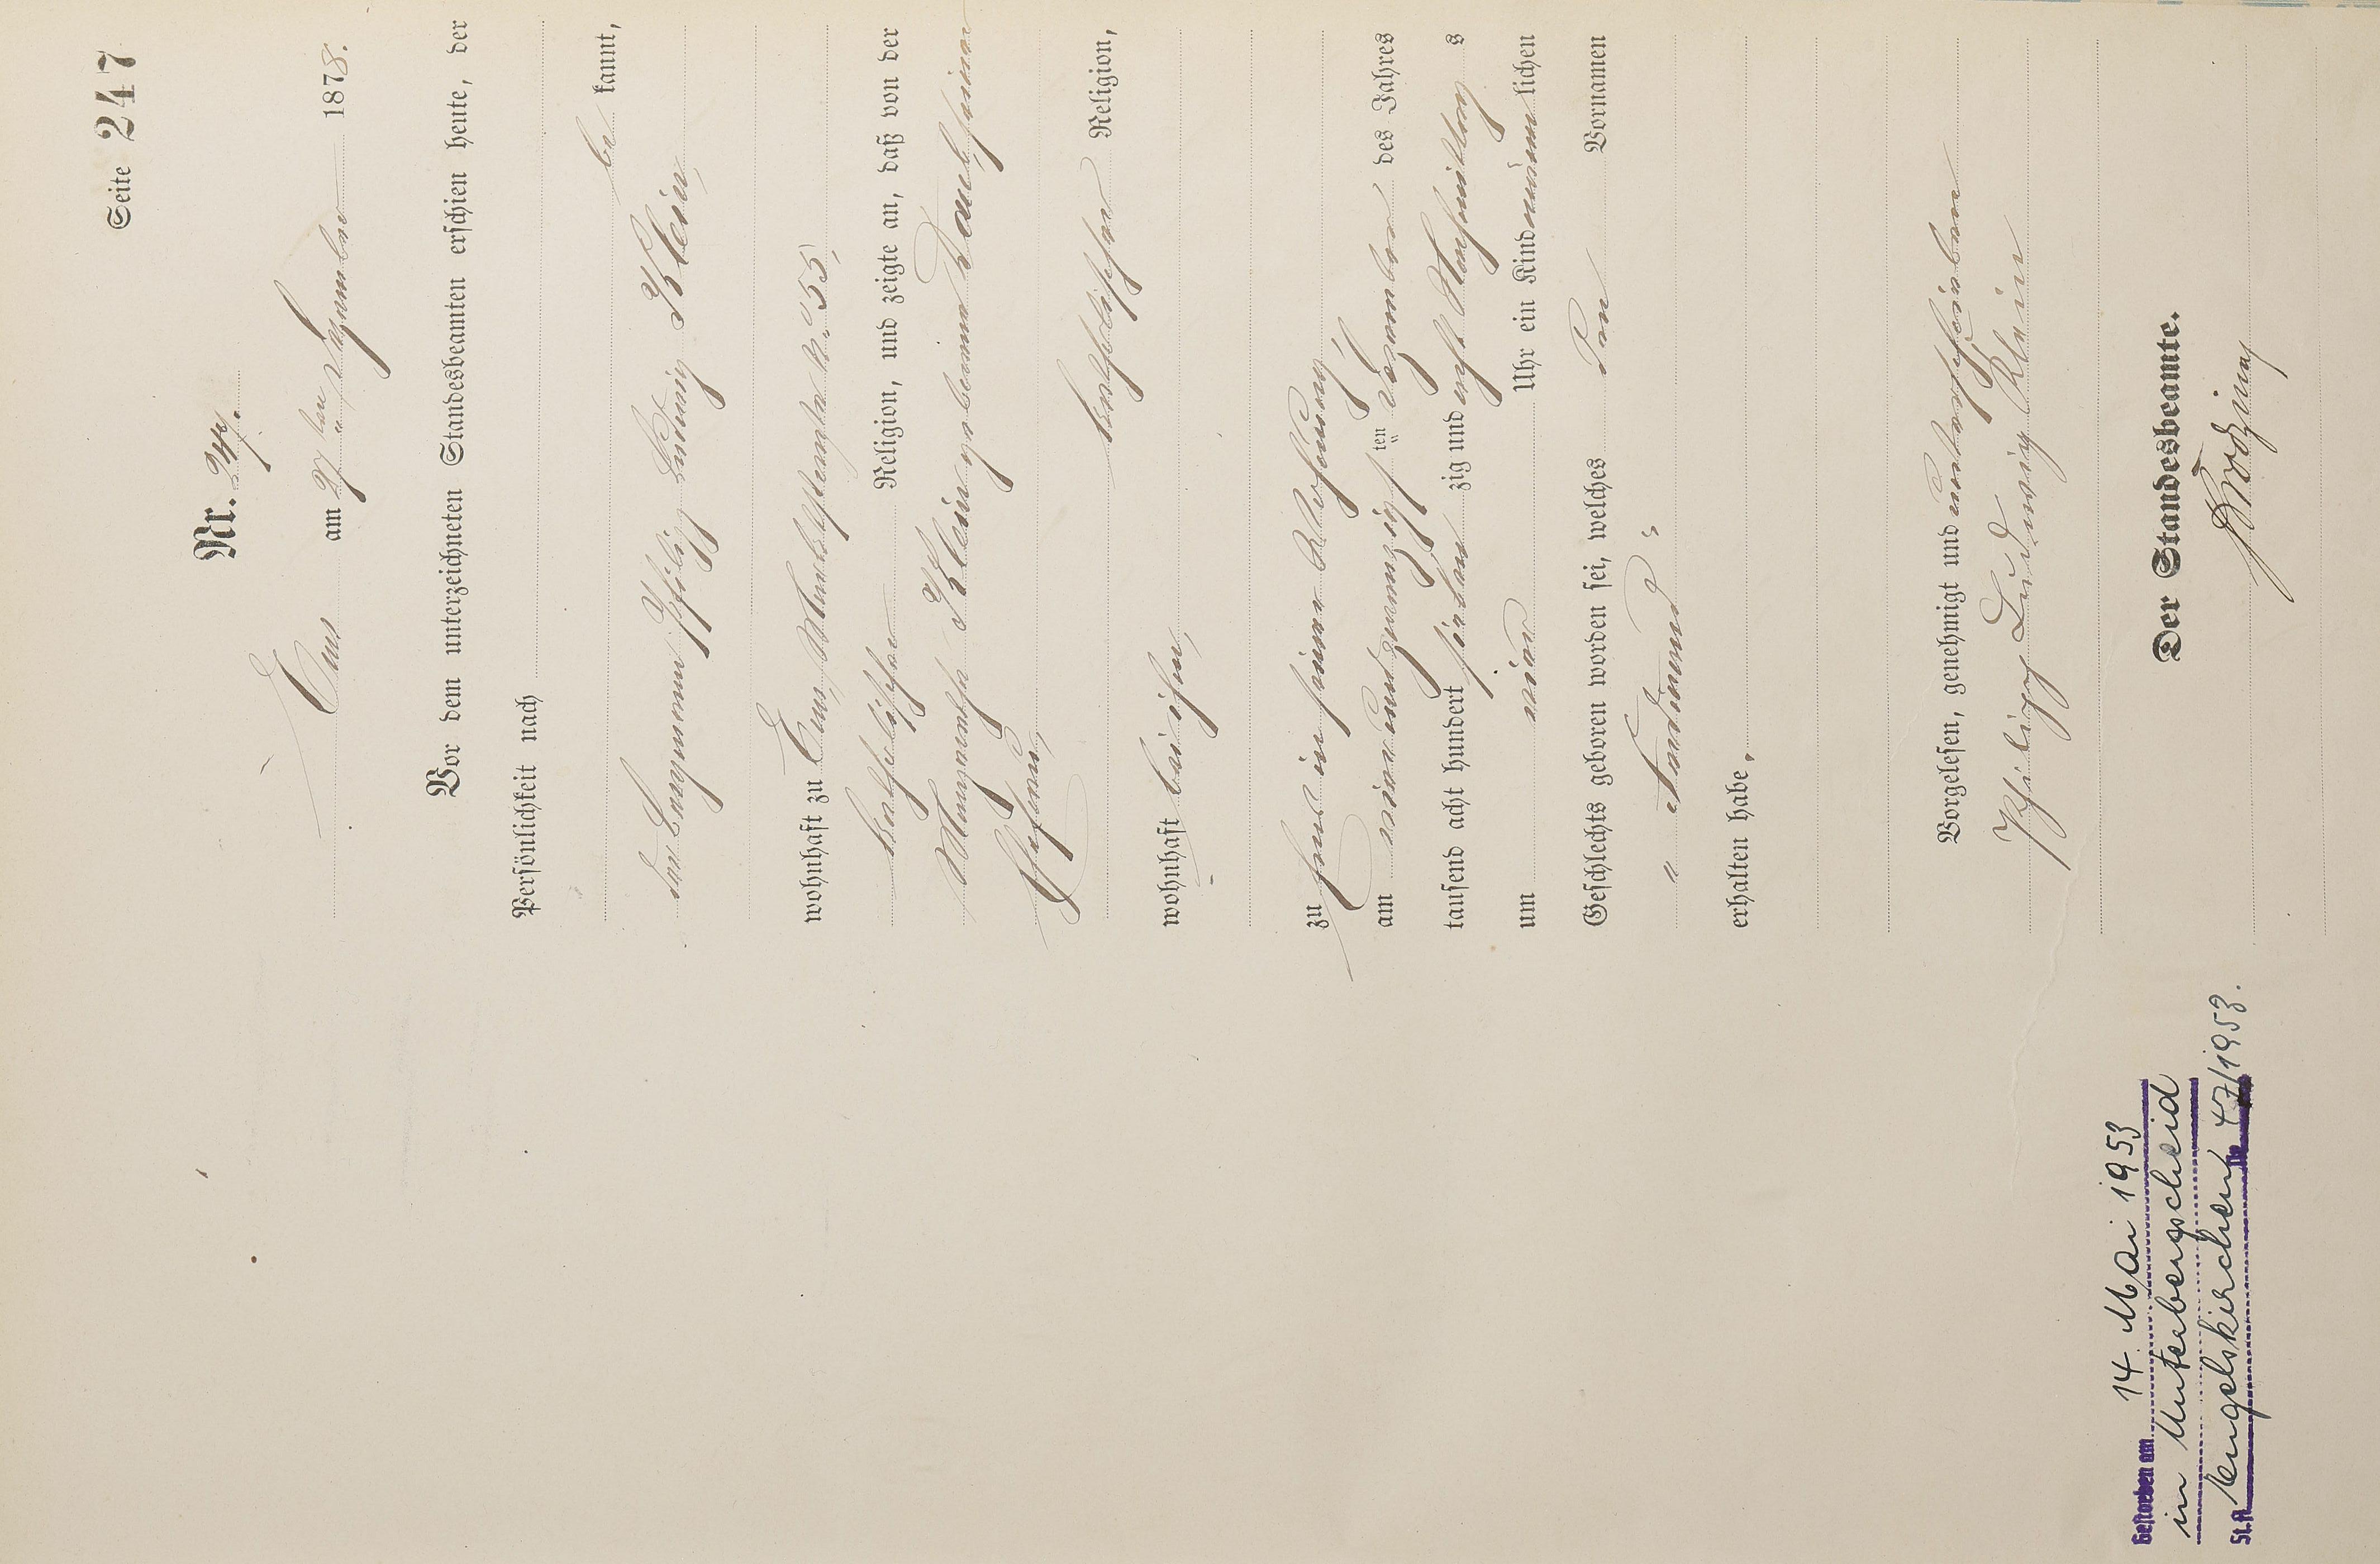 Seite 247
Nr. 247.
Ems am 27ten Dezember 1878.
Vor dem unterzeichneten Standesbeamten erschien heute, der
Persönlichkeit nach
be kannt,
der Bergmann Philipp Ludwig Klein,
wohnhaft zu Ems,
katholischer Religion, und zeigte an, daß von der
Margaretha Klein geborenen seiner
Ehefrau,
katholischer Religion,
wohnhaft bei ihm,
zu Ems in seiner Wohnung,
am vier und zwanzigsten Dezember des Jahres
tausend acht hundert sieben zig und acht Nachmittags
um vier Uhr ein Kind männlichen
Geschlechts geboren worden sei, welches den Vornamen
" Ferdinand "
erhalten habe.
Vorgelesen, genehmigt und unterschrieben
Philipp Ludwig Klein
Der Standesbeamte.
Gestorben am 14. Mai 1953
in Unterbengscheid
St.A. Engelskirchen Nr. 47/1953.